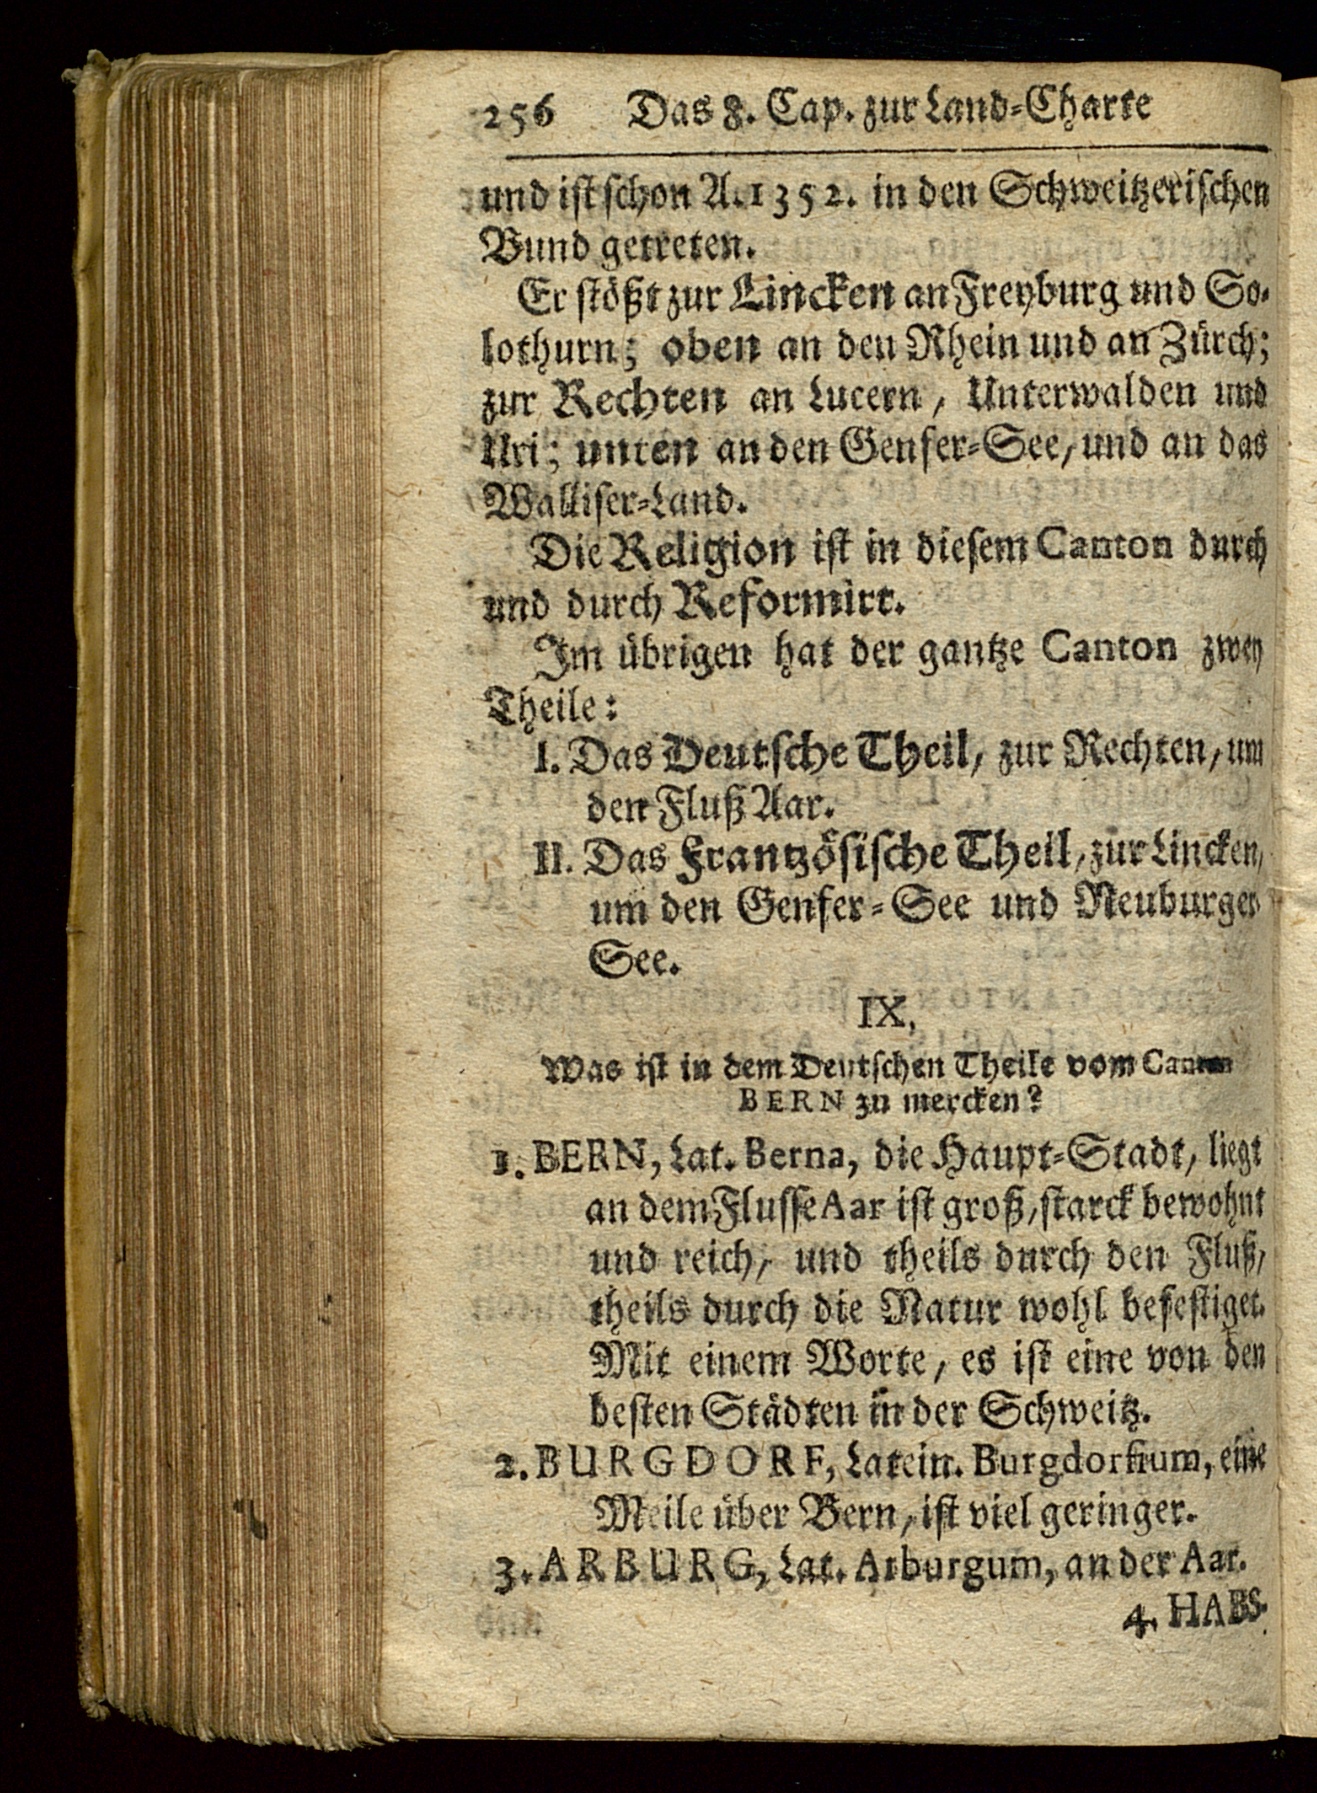 256 Das 8. Cap. zur Land-Charte
und ist schon A. 1352. in den Schweitzerischen
Bund getreten.
Er stößt zur Lincken an Freyburg und So-
lothurn; oben an den Rhein und an Zürch;
zur Rechten an Lucern, Unterwalden und
Uri; unten an den Genfer-See, und an das
Walliser-Land.
Die Religion ist in diesem Canton durch
und durch Reformirt.
Im übrigen hat der gantze Canton zwey
Theile:
I. Das Deutsche Theil, zur Rechten, um
den Fluß Aar.
II. Das Frantzösische Theil, zur Lincken,
um den Genfer-See und Neuburger-
See.
IX.
Was ist in dem Deutschen Theile vom Canton
BERN zu mercken?
1. BERN, Lat. Berna, die Haupt-Stadt, liegt
an dem Flusse Aar ist groß, starck bewohnt
und reich, und theils durch den Fluß,
theils durch die Natur wohl befestiget.
Mit einem Worte, es ist eine von den
besten Städten in der Schweitz.
2. BURGDORF, Latein. Burgdorfium, eine
Meile über Bern, ist viel geringer.
3. ARBURG, Lat. Arburgum, an der Aar.
4. HABS-